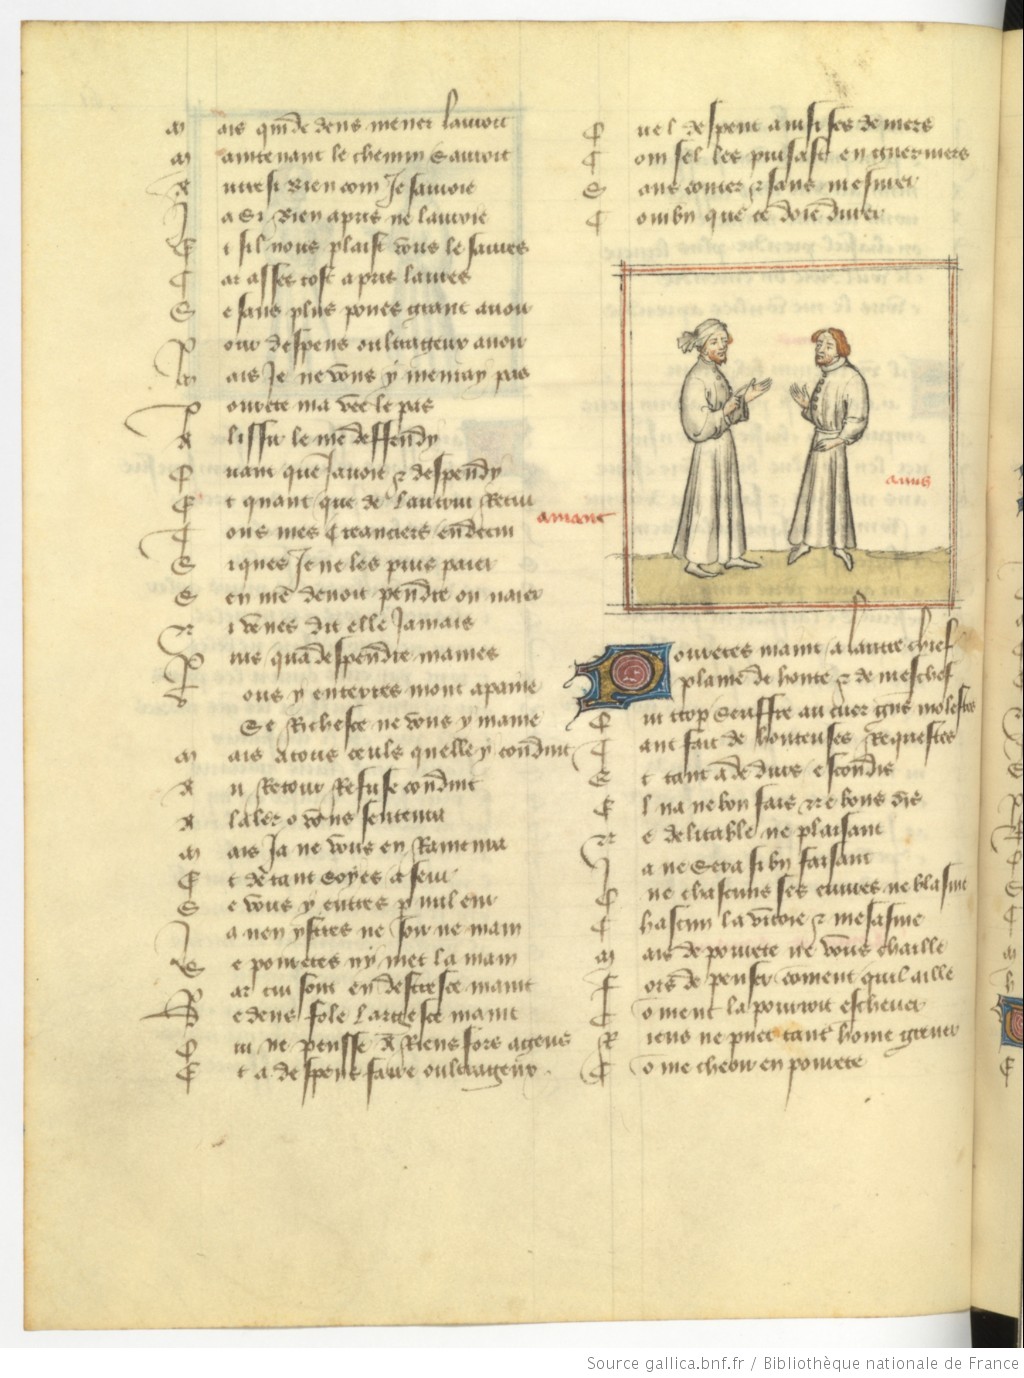 M ais qnde dens mener lauoit
M aintenant le chemin sauoit
A ussi bien com Je sauoie
J a si bien apris ne lauoie
E t sil vous plaist vous le saures
C ar asses tost apris laures
S e sans plus poues grant auoir
P our despens oultrageux auoir
M ais Je ne vous y menray pas
P ourete ma vee le pas
A lissir le me deffendy
Q uant que Jauoie & despendy
E t quant que de lautrui Recui
T ous mes Creanciers en decui
S i ques Je ne les puis paier
S en me deuoit pendre ou naier
N i venes dit elle Jamais
P uis qua despendre mames
V ous y enterres mont a paine
Se Richesce ne vous y maine
M ais a tous ceuls quelle y conduit
A u Retour Refuse conduit
A laler o vous sentenra
M ais Ja ne vous en Ramenra
E t de tant soyes a seur
S e vous y entres p nul eur
J a nen ystres ne soir ne main
S e pouretes ny met la main
P ar cui sont en destresce maint
L edens fole Largesce maint
Q ui ne pensse a Riens fors a geus
E t a despens faire oultrageux
Q uel despent aussi ses deniers
C om sel les puisast en guerniers
S ans conter & sans mesurer
C ombn que ce doie durer
amant
amis
P ouretes maint a lautre chief
plaine de honte & de meschef
Q ui trop seuffre au cuer gns molestes
T ant fait de honteuses Requestes
E t tant a de durs escondis
E l na ne bon fais ne bons dis
N e delitable ne plaisant
J a ne sera si bn faisant
Q ue chascuns ses euures ne blasme
C hascun la vitoie & mesasme
M ais de pourete ne vous chaille
F ors de penser coment quil aille
C oment la pourroit escheuer
R iens ne puet tant home greuer
C ome cheoir en pourete
Source gallica.bnf.fr / Bibliothèque nationale de France